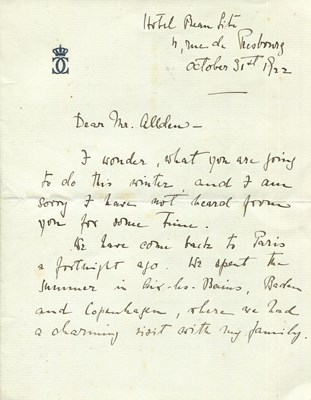 Hotel Beau Site
4, rue de Presbourg
October 31st 1922
Dear Mr. Allden -
I wonder, what you are going
to do this winter, and I am
sorry I have not heard from
you for some time.
We have come back to Paris
a fortnight ago. We spent the
summer in Aix-les-Bains, Baden
and Copenhagen, where we had
a charming visit with my family.